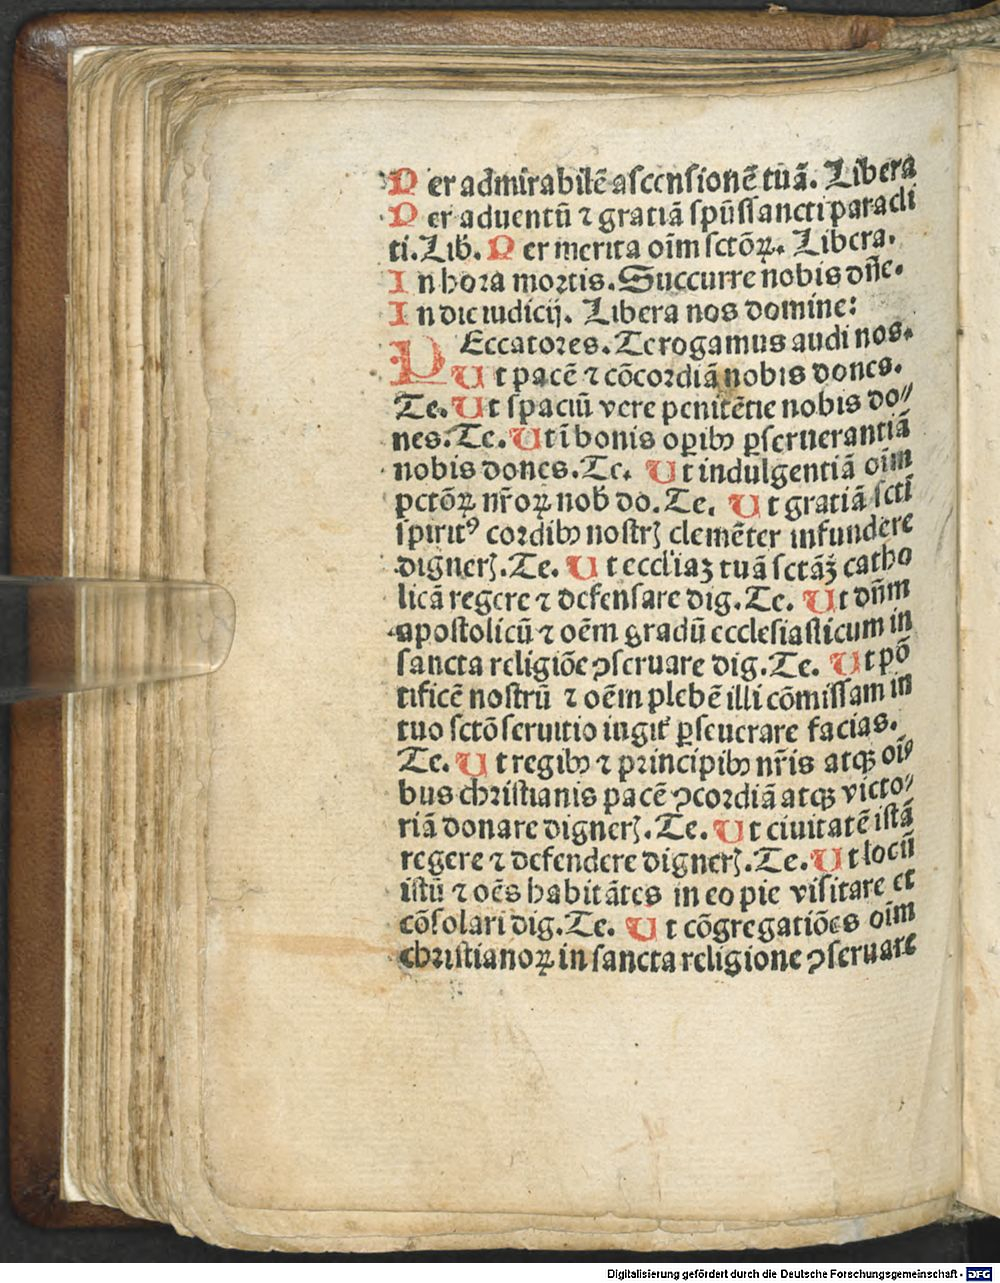 Per admirabilē aſcenſionē tuā. Libera
Per aduentū ⁊ gratiā ſpūſſancti paracli
ti. Lib. Per merita oīm ſctōꝝ. Libera.
In hora moꝛtis. Succurre nobis dn̄e.
In die iudicij. Libera nos domine:
PEccatoꝛes. Te rogamus audi nos.
Ut pacē ⁊ cōcoꝛdiā nobis dones.
Te. Ut ſpaciū vere penitētie nobis do⸗
nes. Te. Ut ī bonis oꝑibꝰ ꝑſeruerantiā
nobis dones. Te. Ut indulgentiā oīm
pctōꝝ nr̄oꝝ nob̄ do. Te. Ut gratiā ſctī
ſpiritꝰ coꝛdibꝰ noſtrꝭ clemēter infundere
dignerꝭ. Te. Ut eccl'iaꝫ tuā ſctāꝫ catho
licā regere ⁊ defenſare dig. Te. Ut dn̄m
apoſtolicū ⁊ oēm gradū eccleſiaſticum in
ſancta religiōe ꝯſeruare dig. Te. Ut pō
tificē noſtrū ⁊ oēm plebē illi cōmiſſam in
tuo ſctō ſeruitio iugit' ꝑſeuerare facias.
Te. Ut regibꝰ ⁊ pꝛincipibꝰ nr̄is atqꝫ oī⸗
bus chꝛiſtianis pacē ꝯcoꝛdiā atqꝫ victo⸗
riā donare dignerꝭ. Te. Ut ciuitatē iſtā
regere ⁊ defendere dignerꝭ. Te. Ut locū
iſtū ⁊ oēs habitātes in eo pie viſitare et
cōſolari dig. Te. Ut cōgregatiōes oīm
chꝛiſtianoꝝ in ſancta religione ꝯſeruare
Digitalisierung gefördert durch die Deutsche Forschungsgemeinschaft - DFG